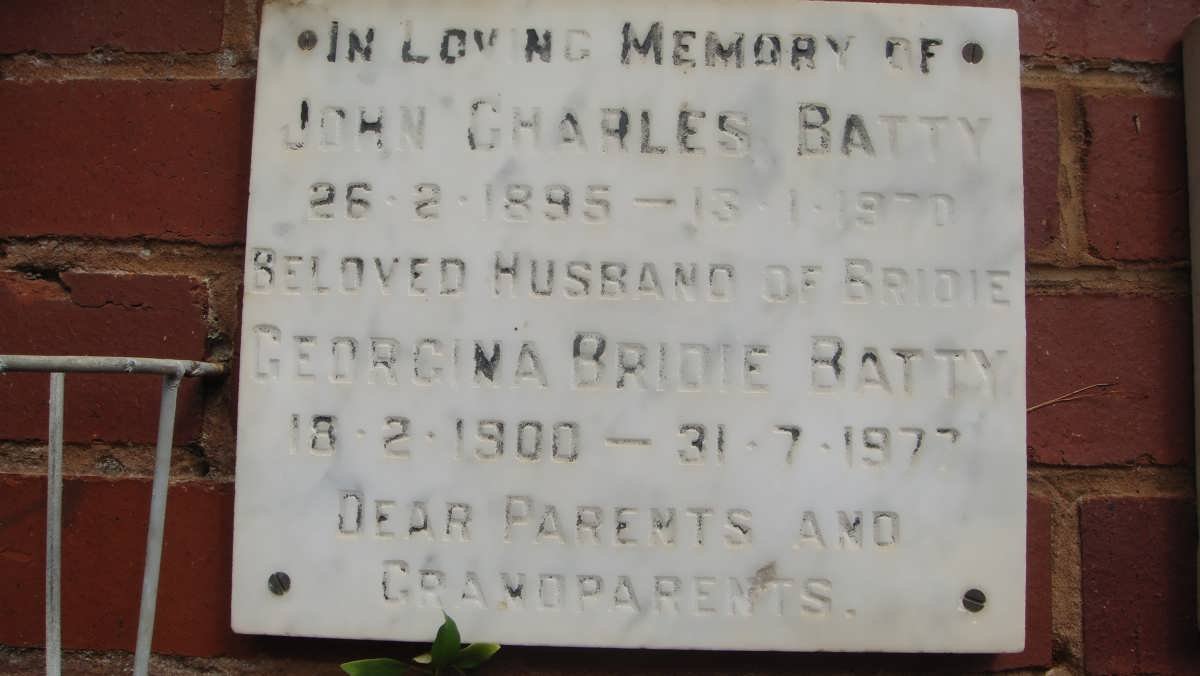 IN LOVING MEMORY OF
JOHN CHARLES BATTY
26·2·1895 — 13·1·1970
BELOVED HUSBAND OF BRIDIE
GEORGINA BRIDIE BATTY
18·2·1900 — 31·7·1977
DEAR PARENTS AND
GRANDPARENTS.